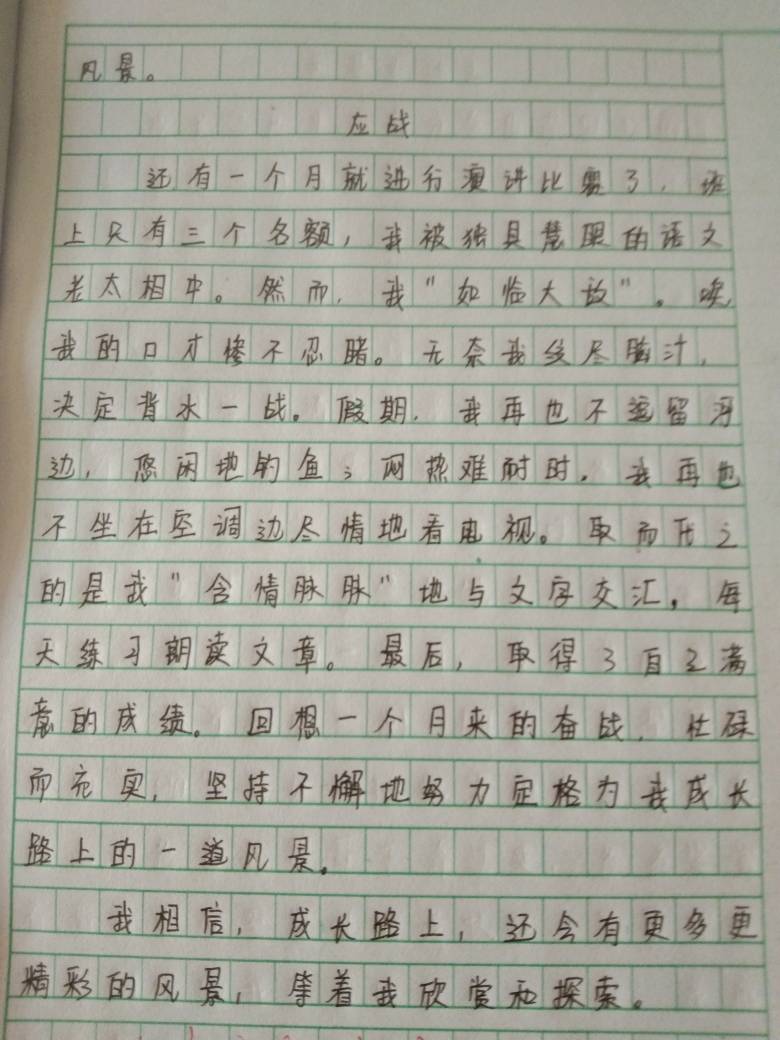 风景。
应战
还有一个月就进行演讲比赛了，班
上只有三个名额，我被独具慧眼的语文
老太相中。然而，我"如临大敌"。唉，
我的口才惨不忍睹。无奈我绞尽脑汁，
决定背水一战。假期，我再也不逗留河
边，悠闲地钓鱼；闷热难耐时，我再也
不坐在空调边尽情地看电视。取而代之
的是我"含情脉脉"地与文字交汇，每
天练习朗读文章。最后，取得了自己满
意的成绩。回想一个月来的奋战，忙碌
而充实，坚持不懈地努力定格为我成长
路上的一道风景。
我相信，成长路上，还会有更多更
精彩的风景，等着我欣赏和探索。